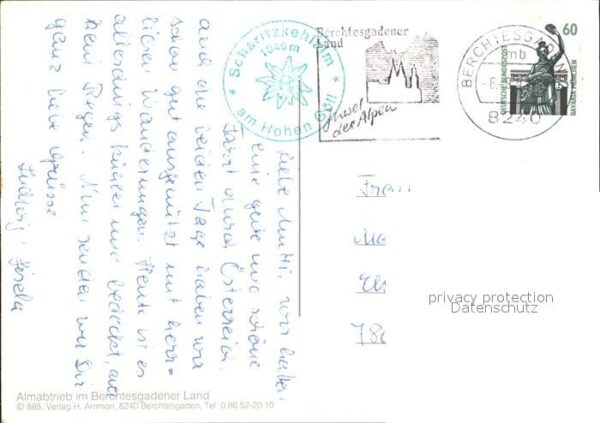 Liebe Mutti, wir hatten
eine gute und schöne
Fahrt durch Österreich
und die beiden Tage haben wir
schon gut ausgenützt mit herr-
lichen Wanderungen. Heute ist es
allerdings kühler und bedeckt, aber
kein Regen. Nun senden wir Dir
ganz liebe Grüsse
Ludwig Gisela
* Scharitzkehlalm *
1040 m
am Hohen Göll
Berchtesgadener
Land
Juwel
der Alpen
BERCHTESGADEN
mb
8240
60
DEUTSCHE BUNDESPOST
BAVARIA MÜNCHEN
Frau
privacy protection
Datenschutz
Almabtrieb im Berchtesgadener Land
© 885, Verlag H. Ammon, 8240 Berchtesgaden, Tel. 0 86 52-20 10